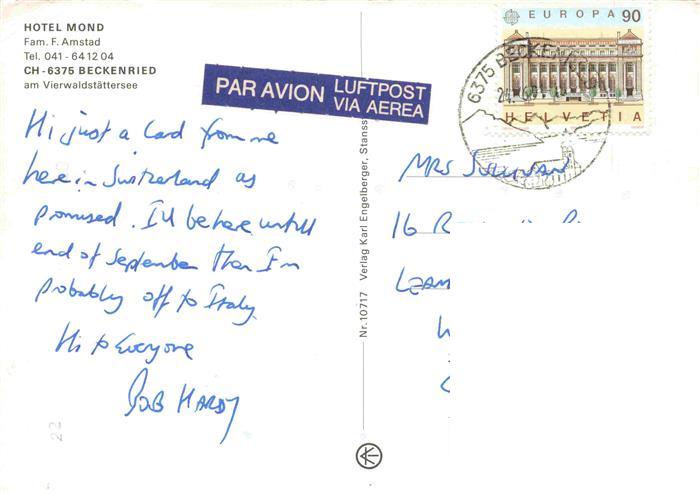 HOTEL MOND
Fam. F. Amstad
Tel. 041 - 64 12 04
CH - 6375 BECKENRIED
am Vierwaldstättersee
PAR AVION LUFTPOST
VIA AEREA
EUROPA 90
HELVETIA
6375 BECKEN
Hi just a card from me
here in Switzerland as
promised. I'll be here untill
end of September then I'm
probably off to Italy
Hi to Everyone
Bob HARDY
Nr. 10717 Verlag Karl Engelberger, Stansst
MRS SULLIVAN
16
22